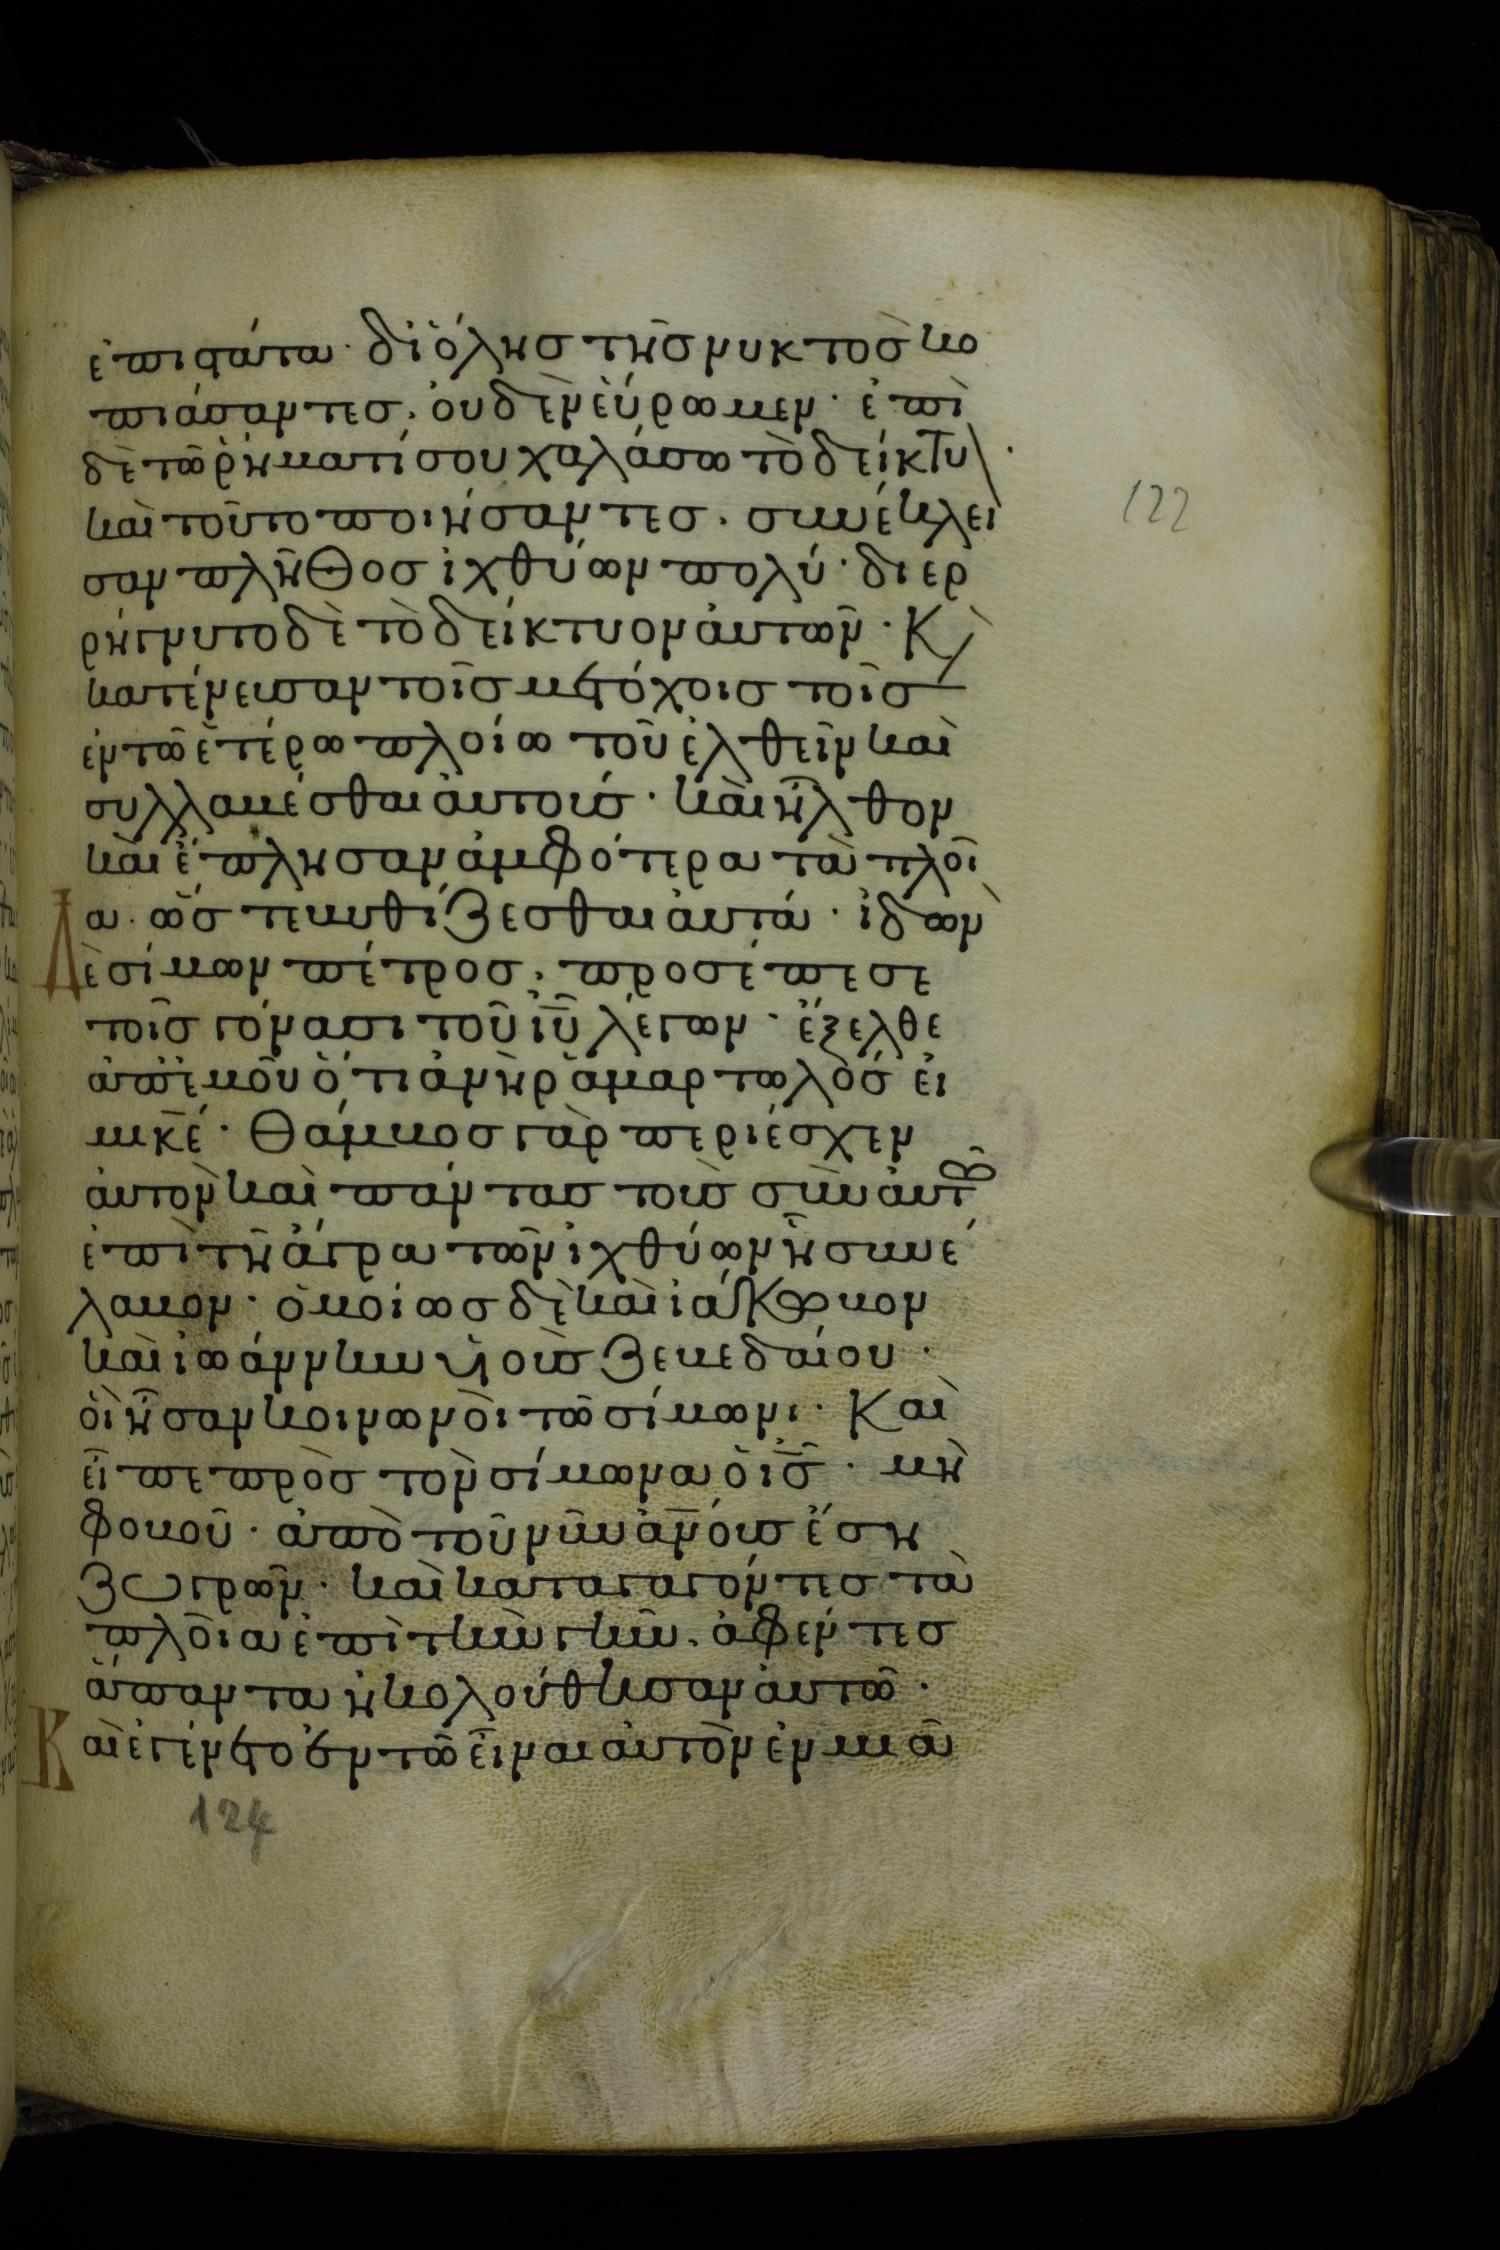 ἐπιστάτα· δι' ὅλης τῆς νυκτὸς κο
πιάσαντες· οὐδὲν ἐύρωμεν· ἐπὶ
δὲ τῶ ῥήματί σου χαλάσω τὸ δείκτυ\·
καὶ τοῦτο ποιήσαντες· συνέκλει
σαν πλῆθος ἰχθύων πολύ· διερ
ρήγνυτο δὲ τὸ δείκτυον ἀυτῶν· Κ̀
κατένευσαν τοῖς μετόχοις τοῖς
ἐν τῶ ἑτέρω πλοίω τοῦ ἐλθεῖν καὶ
συλλαβέσθαι ἀυτοῖς· καὶ ἦλθον
καὶ ἔπλησαν ἀμφότερα τὰ πλοῖ
α· ὥς τε βυθίζεσθαι ἀυτά· ἰδὼν
Δὲ σίμων πέτρος· προσέπεσε
τοῖς γόνασι τοῦ ἰῦ λέγων· ἔξελθε
ἀπ' ἐμοῦ ὅτι ἀνὴρ ἁμαρτωλός εἰ
μι κ̅ε· Θάμβος γὰρ περιέσχεν
ἀυτὸν καὶ πάντας τοὺς σὺν ἀυτῶ
ἐπὶ τῆ ἄγρα τῶν ἰχθύων ἧ συνέ
λαβον· ὁμοίως δὲ καὶ ἰάκωβον
καὶ ἰωάννην ὑιοὺς Ζεβεδαίου·
ὁὶ ἦσαν κοινωνοὶ τῶ σίμωνι· Καὶ
εἶπε πρὸς τὸν σίμωνα ὁ ι̅ς· μὴ
φοβοῦ· ἀπὸ τοῦ νῦν α̅νόυς ἔση
ζωγρῶν· καὶ καταγαγόντες τὰ
πλοῖα ἐπὶ τὴν γῆν· ἀφέντες
ἅπαντα ἠκολούθησαν ἀυτῶ·
Καὶ ἐγένετο ἐν τῶ εἶναι ἀυτὸν ἐν μιᾶ
122
124